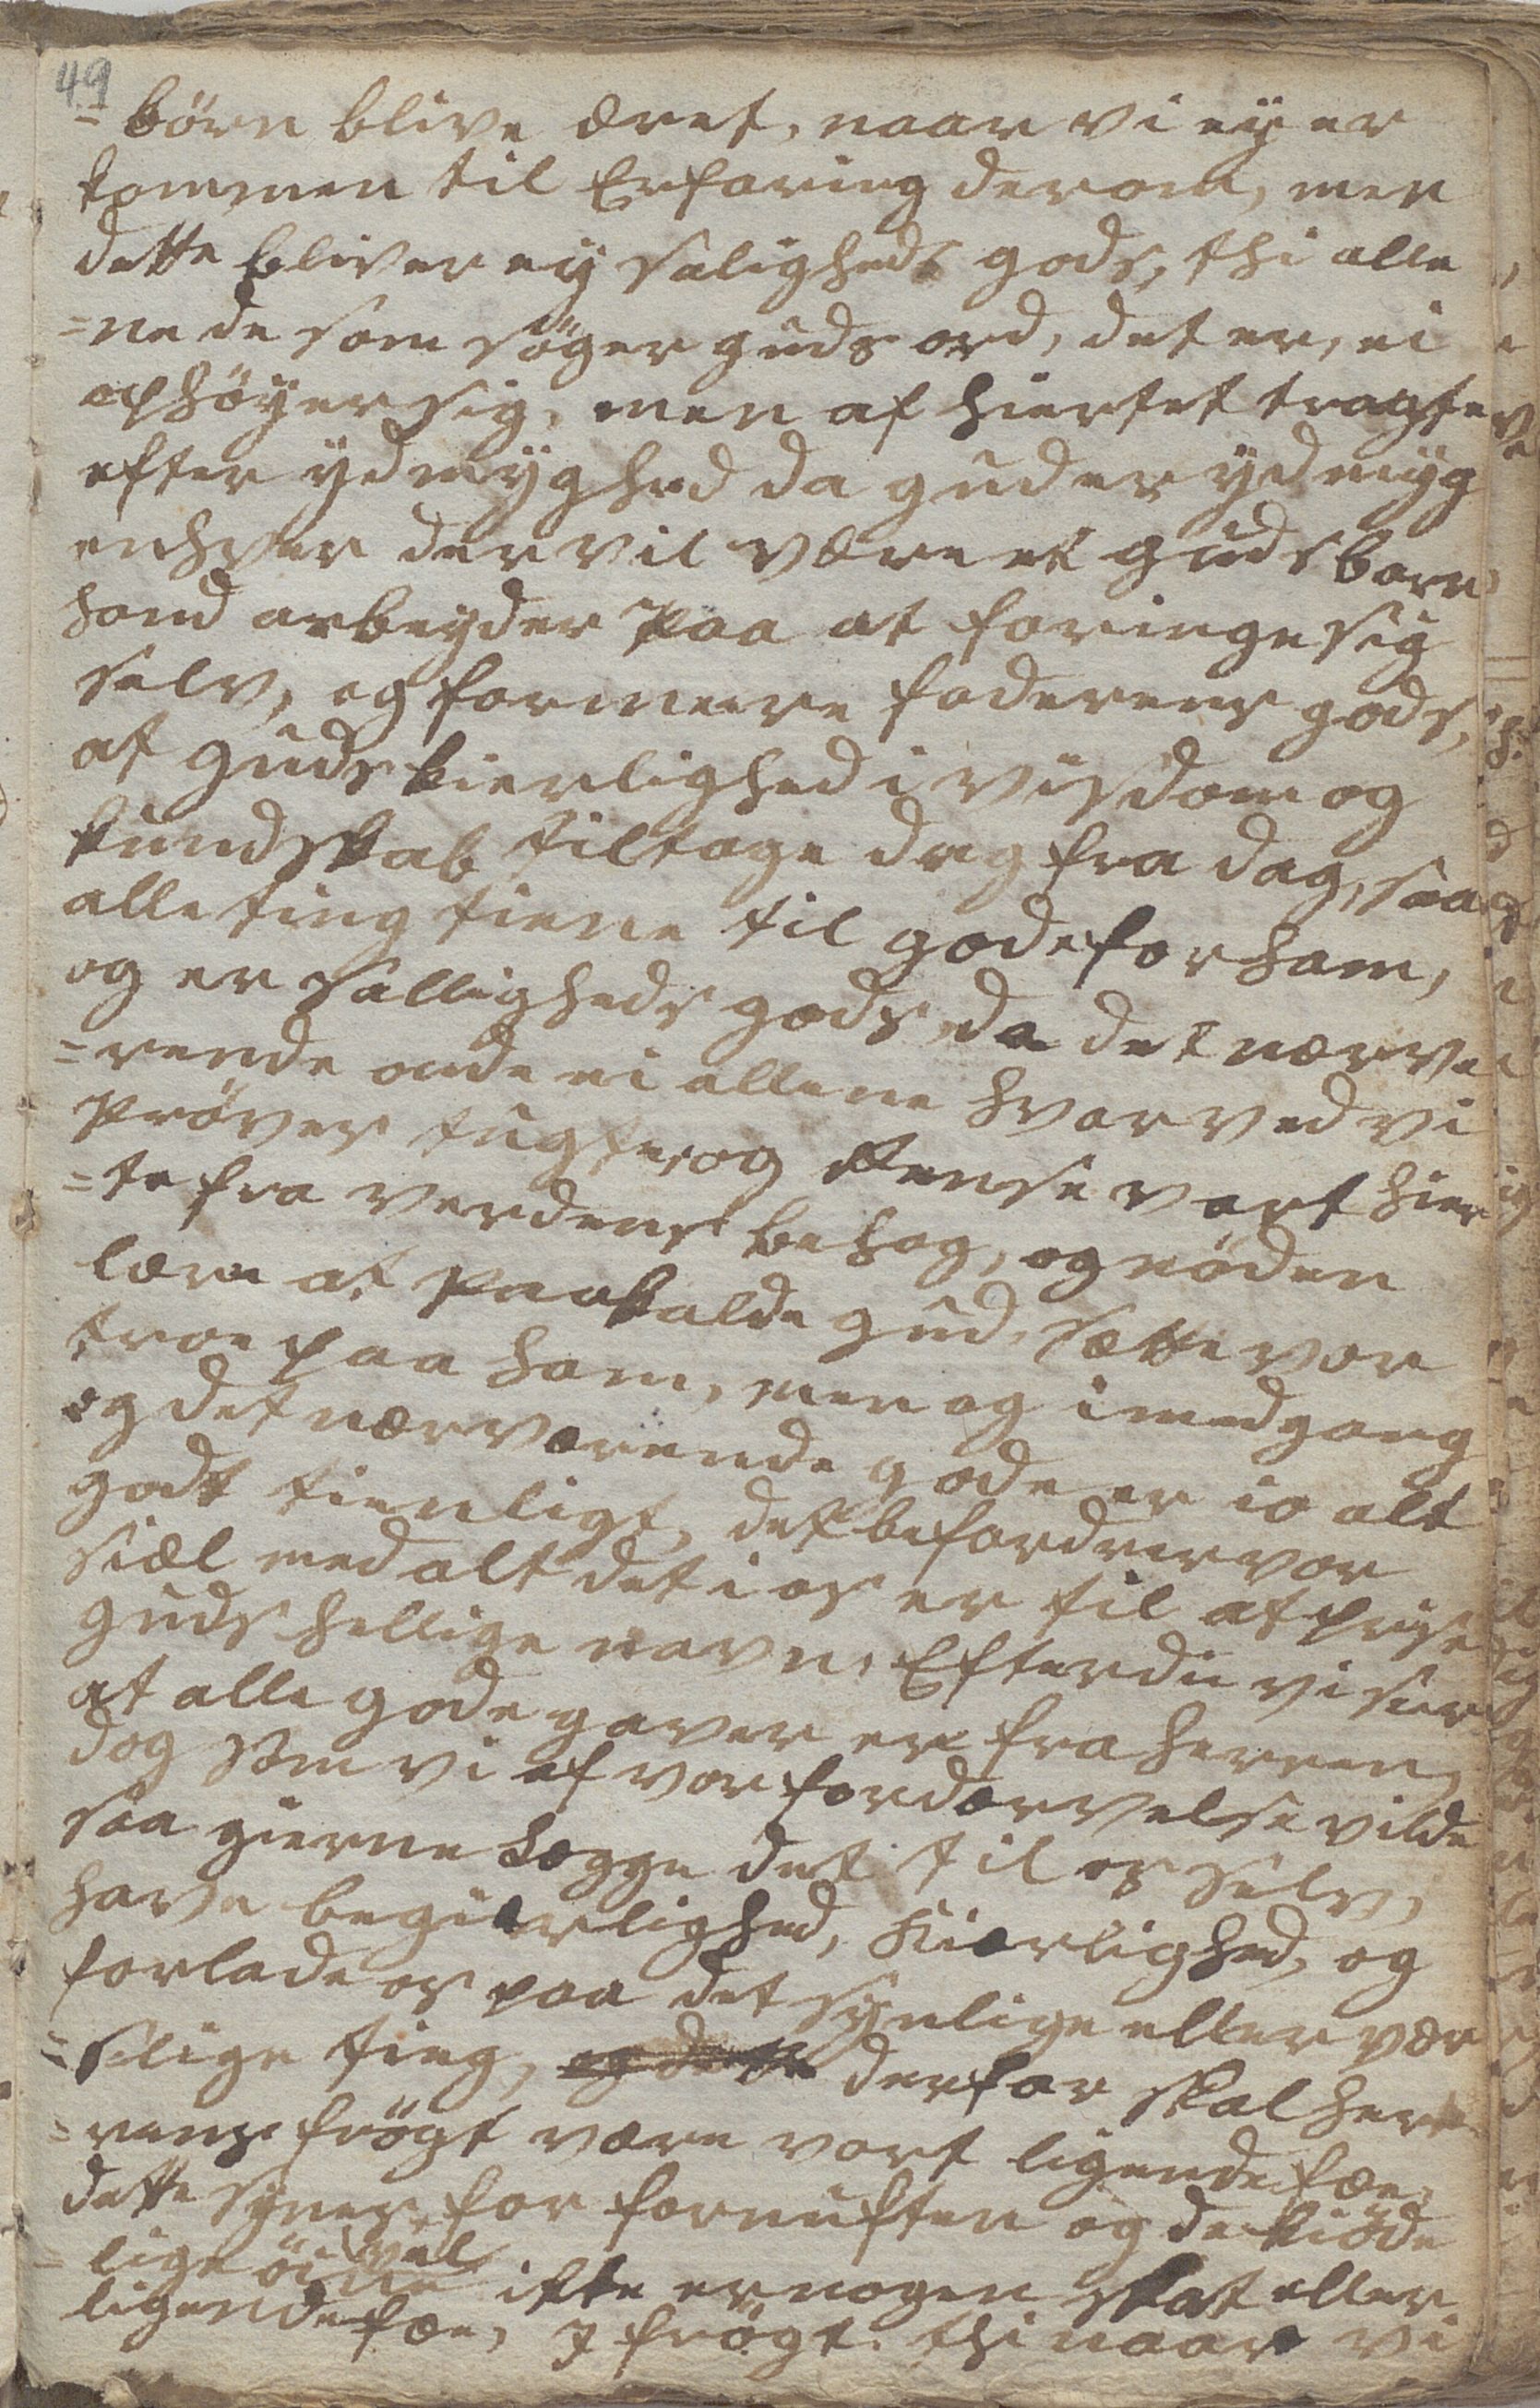 49
= börn blive æret, naar vi ey er
kommen til Erfaring derom, men
dette bliver ey saligheds gods, thi alle
=ne de som söger guds ord, det er, ei
ophöyer sig, men af hiertet tragter
efter ydmyghed da gud er ydmyg
enhver der vil være et guds barn
hand arbeyder paa at foringe sig
selv, og formeere faderens gods,
af guds kierlighed i viisdom og
kundskab tiltage dag fra dag, saa
alle ting tiene til gode for ham,
og er salligheds gods da det nærvæ
=rende onde ei allene hvorved vi
pröves tugtes og Rense vort hier
=te fra verdens behag, og nöden
lære at paakalde gud, sætte vor
troe paa ham, men og i medgang
og det nærværende gode er io alt
godt tienligt, det befordrer vor
siæl med alt det i os er til at prise
guds hellige navn, Efterdi vi seer
at alle gode gaver er fra herren,
dog som vi af vor fordærvelse vilde
saa gierne Lægge det til os selv,
have begiærlighed, Kiærlighed, og
forlade os paa det synlige eller vær
=slige ting, derfor skal her
=rens frögt være vort ligende fæe,
dette synes for fornuften og de kiöde
=lige öine vel ikke er nogen skat eller
ligende fæe, I frögt. thi naar vi